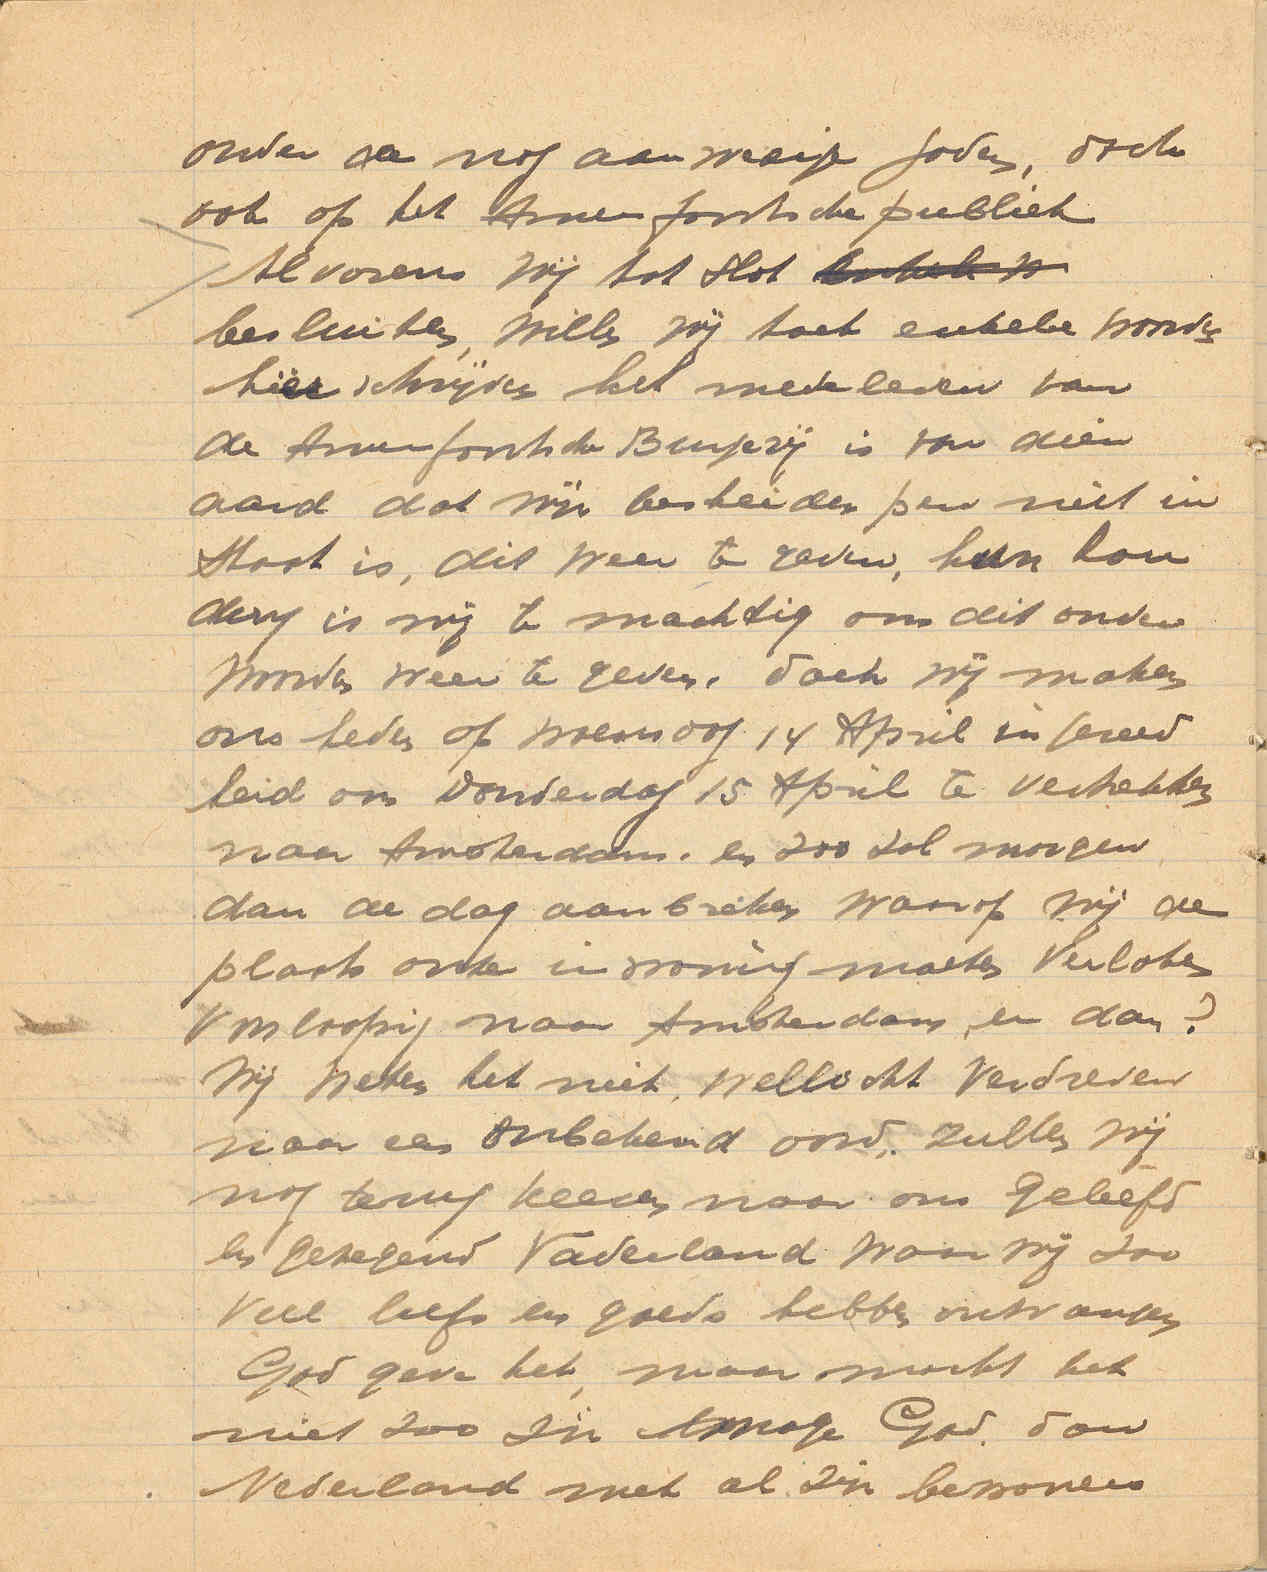 onder de nog aanwezige Joden, doch
ook op het Amersfoortsche publiek
Alvorens wij tot slot
besluiten, willen wij toch enkele woorden
hier schrijven het medeleven van
de Amersfoortsche Burgerij is van dien
aard dat mijn bescheiden pen niet in
staat is, dit weer te geven, hun hou
ding is mij te machtig om dit onder
woorden weer te geven. doch wij maken
ons heden op woensdag 14 April in gereed
heid om Donderdag 15 April te vertrekken
naar Amsterdam. en zoo zal morgen
dan de dag aanbreken waarop wij de
plaats onzer inwoning moeten verlaten
Voorloopig naar Amsterdam, en dan?
Wij weten het niet, wellicht verdreven
naar een onbekend oord,. zullen wij
nog terug keeren naar ons geliefd
en gezegend Vaderland waar wij zoo
veel liefs en goeds hebben ontvangen
God geve het, maar mocht het
niet zoo zijn moge God. dan
Nederland met al zijn bewoners